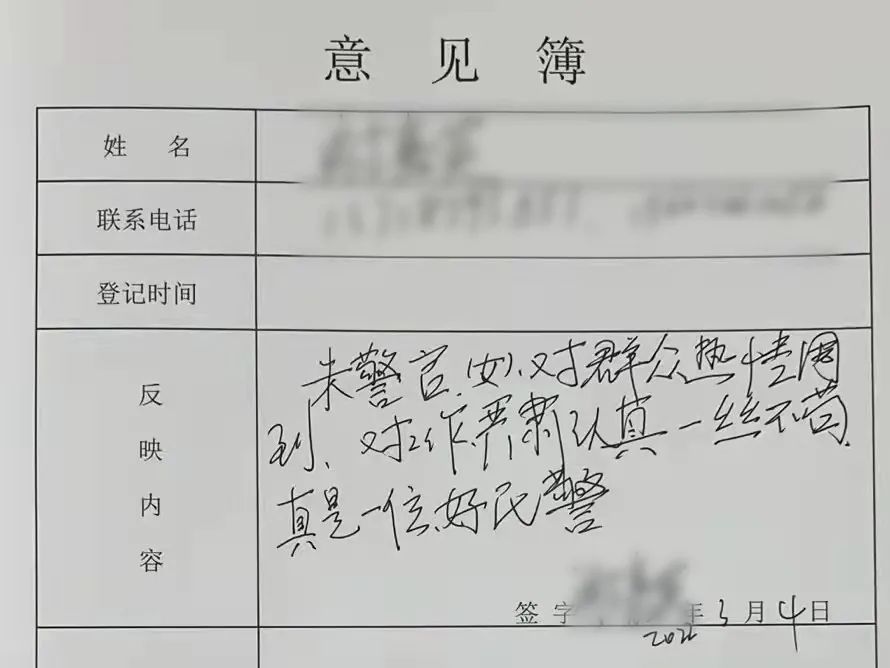 意见簿
姓 名
联系电话
登记时间
反映内容
朱警官(女),对群众热情周
到、对工作严肃认真一丝不苟
真是一位好民警
签字 年3月4日
2022